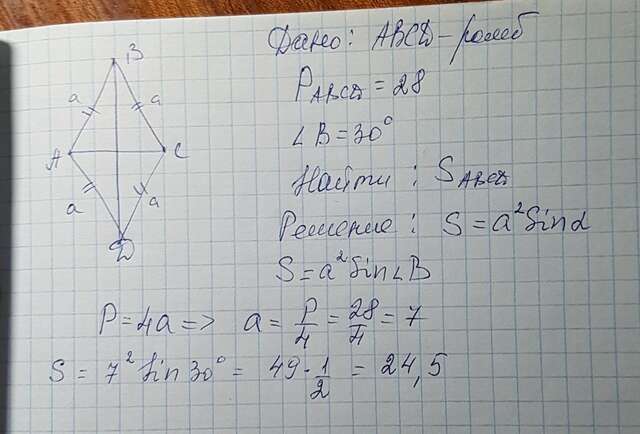 B
a a
A C
a a
D
Дано: ABCD - ромб
P ABCD = 28
∠B = 30°
Найти: S ABCD
Решение: S = a² sin α
S = a² sin ∠B
P = 4a => a = P/4 = 28/4 = 7
S = 7² sin 30° = 49 · 1/2 = 24,5